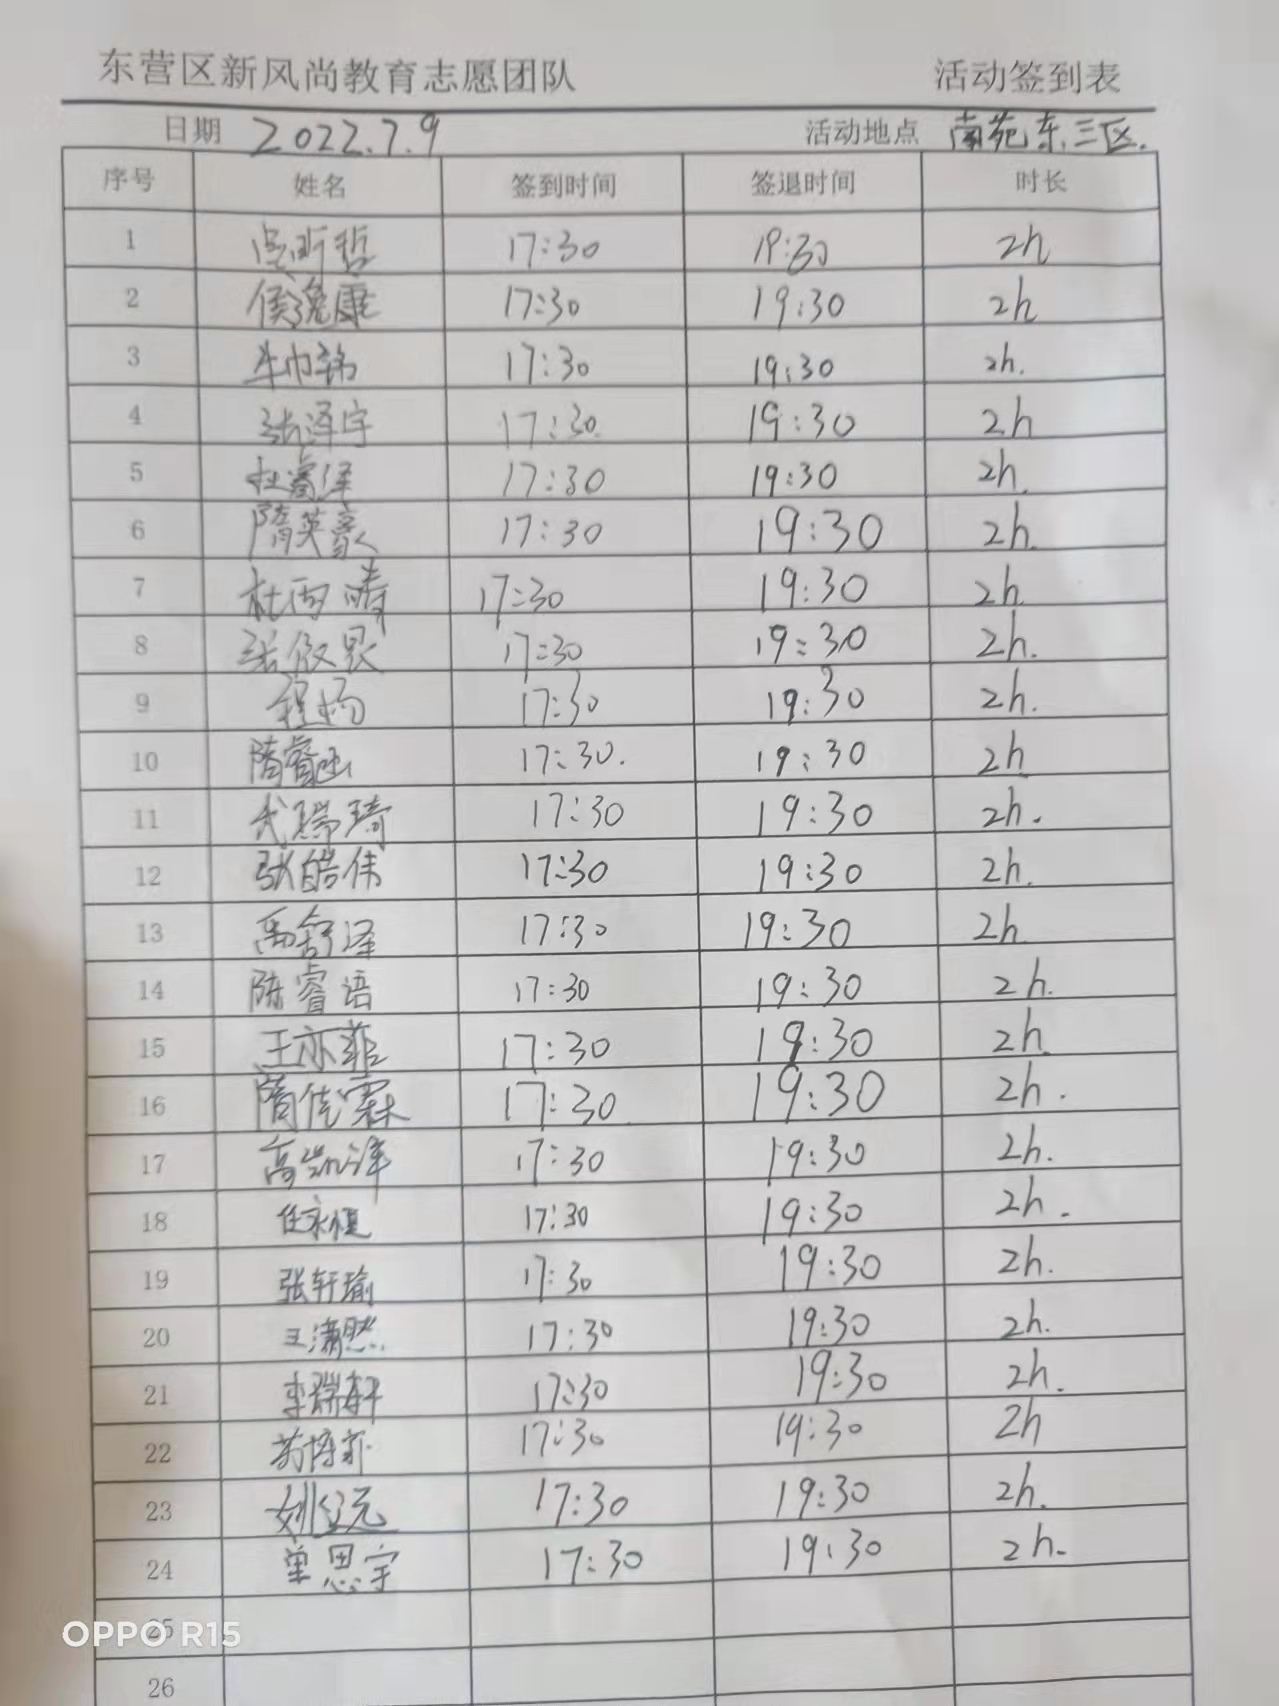 东营区新风尚教育志愿团队 活动签到表
日期 2022.7.9 活动地点 南苑东三区.
序号 姓名 签到时间 签退时间 时长
1 17:30 19:30 2h
2 侯逸康 17:30 19:30 2h
3 17:30 19:30 2h.
4 张泽宇 17:30. 19:30 2h
5 杜睿泽 17:30 19:30 2h.
6 隋英豪 17:30 19:30 2h.
7 杜雨晴 17:30 19:30 2h
8 17:30 19:30 2h.
9 程杨 17:30 19:30 2h.
10 隋睿 17:30. 19:30 2h
11 武瑞琦 17:30 19:30 2h.
12 张皓伟 17:30 19:30 2h.
13 舒泽 17:30 19:30 2h
14 陈睿语 17:30 19:30 2h.
15 王亦菲 17:30 19:30 2h
16 隋佳霖 17:30 19:30 2h.
17 高凯泽 17:30 19:30 2h.
18 任永恒 17:30 19:30 2h.
19 张轩瑜 17:30 19:30 2h.
20 王潇然 17:30 19:30 2h.
21 李瑞轩 17:30 19:30 2h.
22 17:30 19:30 2h
23 姚立元 17:30 19:30 2h.
24 单思宇 17:30 19:30 2h.
25
OPPO R15
26